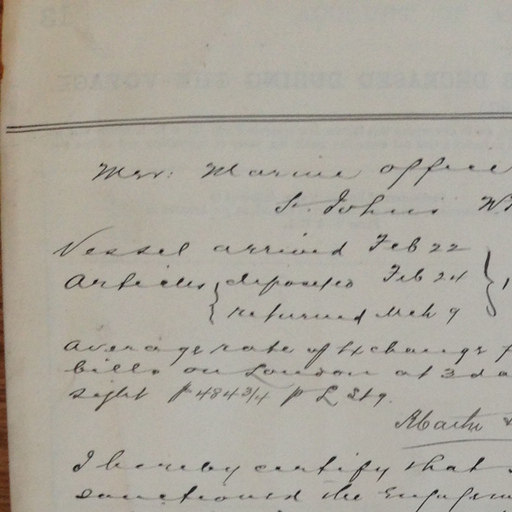 Mer: Marine office
St. Johns
Vessel arrived Feb 22
Articles deposited Feb 24
returned Mch 9
average rate of Exchange f
bills on London at 3 da
sight $ 484 3/4 p £ Stg.
I hereby certify that
sanctioned the Engagem